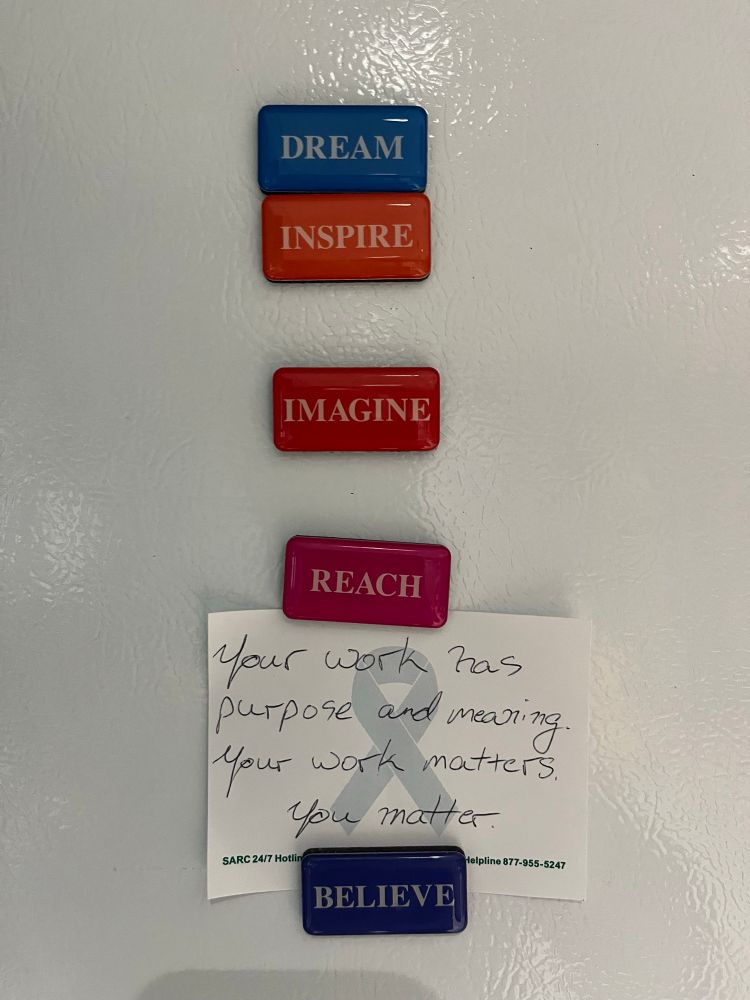 DREAM
INSPIRE
IMAGINE
REACH
Your work has
purpose and meaning.
Your work matters.
You matter.
SARC 24/7 Helpline 877-955-5247
BELIEVE